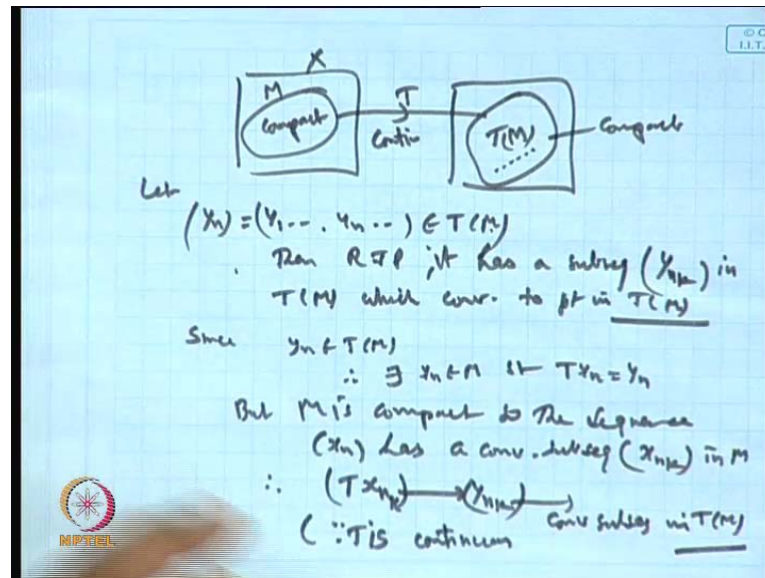 © C
I.I.T.
X
M
T
compact
Contin
T(M)
Compact
Let
(yn) = (y1 -- . yn --) ∈ T(M)
Then RTP, it has a subseq (ynk) in
T(M) which conv. to pt in T(M)
Since yn ∈ T(M)
∴ ∃ xn ∈ M st Txn = yn
But M is compact so The sequence
(xn) has a conv. subseq (xnk) in M
∴ (Txnk) → (ynk) → Conv subseq in T(M)
(∵ T is continuous
NPTEL